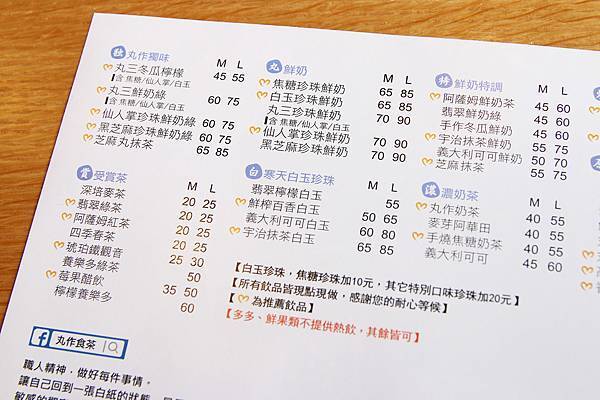 獨 丸作獨味 M L
丸三冬瓜檸檬 45 55
▌含 焦糖/仙人掌/白玉
丸三鮮奶綠 60 75
▌含 焦糖/仙人掌/白玉
仙人掌珍珠鮮奶綠 60 75
黑芝麻珍珠鮮奶綠 60 75
芝麻丸抹茶 65 85
賞 受賞茶 M L
深焙麥茶 20 25
翡翠綠茶 20 25
阿薩姆紅茶 20 25
四季春茶 20 25
琥珀鐵觀音 25 30
養樂多綠茶 50
莓果醋飲 35 50
檸檬養樂多 60
丸 鮮奶 M L
焦糖珍珠鮮奶 65 85
白玉珍珠鮮奶 65 85
丸三珍珠鮮奶 70 90
▌含 焦糖/仙人掌/白玉
仙人掌珍珠鮮奶 70 90
黑芝麻珍珠鮮奶 70 90
白 寒天白玉珍珠 M L
翡翠檸檬白玉 55
鮮榨百香白玉 50 65
義大利可可白玉 60 80
宇治抹茶白玉 65 85
特 鮮奶特調 M L
阿薩姆鮮奶茶 45 60
翡翠鮮奶綠 45 60
手作冬瓜鮮奶 45 60
宇治抹茶鮮奶 55 75
義大利可可鮮奶 50 70
芝麻鮮奶 55 75
濃 濃奶茶 M L
丸作奶茶 40 55
麥芽阿華田 40 55
手燒焦糖奶茶 40 55
義大利可可 45 60
【白玉珍珠，焦糖珍珠加10元，其它特別口味珍珠加20元】
【所有飲品皆現點現做，感謝您的耐心等候】
【♡為推薦飲品】
【多多、鮮果類不提供熱飲，其餘皆可】
f 丸作食茶
職人精神，做好每件事情。
讓自己回到一張白紙的狀態